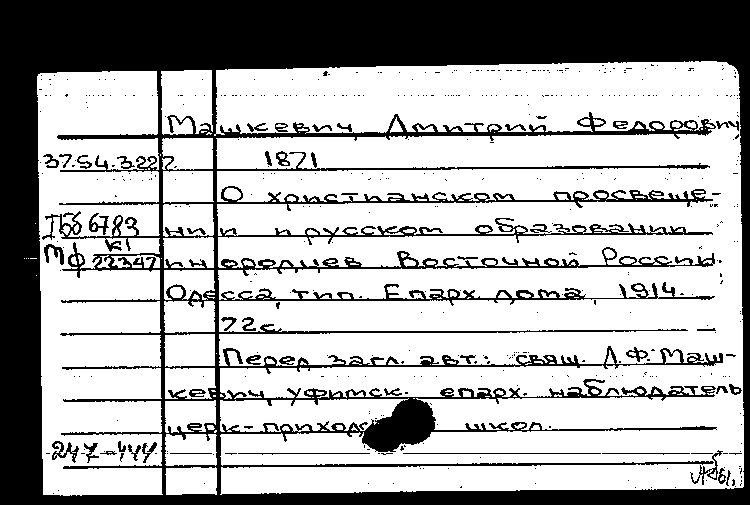 Машкевич, Дмитрий Федорович
37.54.3.227. 1871
О христианском просвеще-
IБб 6783 нии и русском образовании
Мф К1 22347 инородцев Восточной России.
Одесса, тип. Епарх. дома, 1914.
72с.
Перед загл. авт.: свящ. Д.Ф. Маш-
кевич, уфимск. епарх. наблюдатель
церк-приходс школ.
247-444